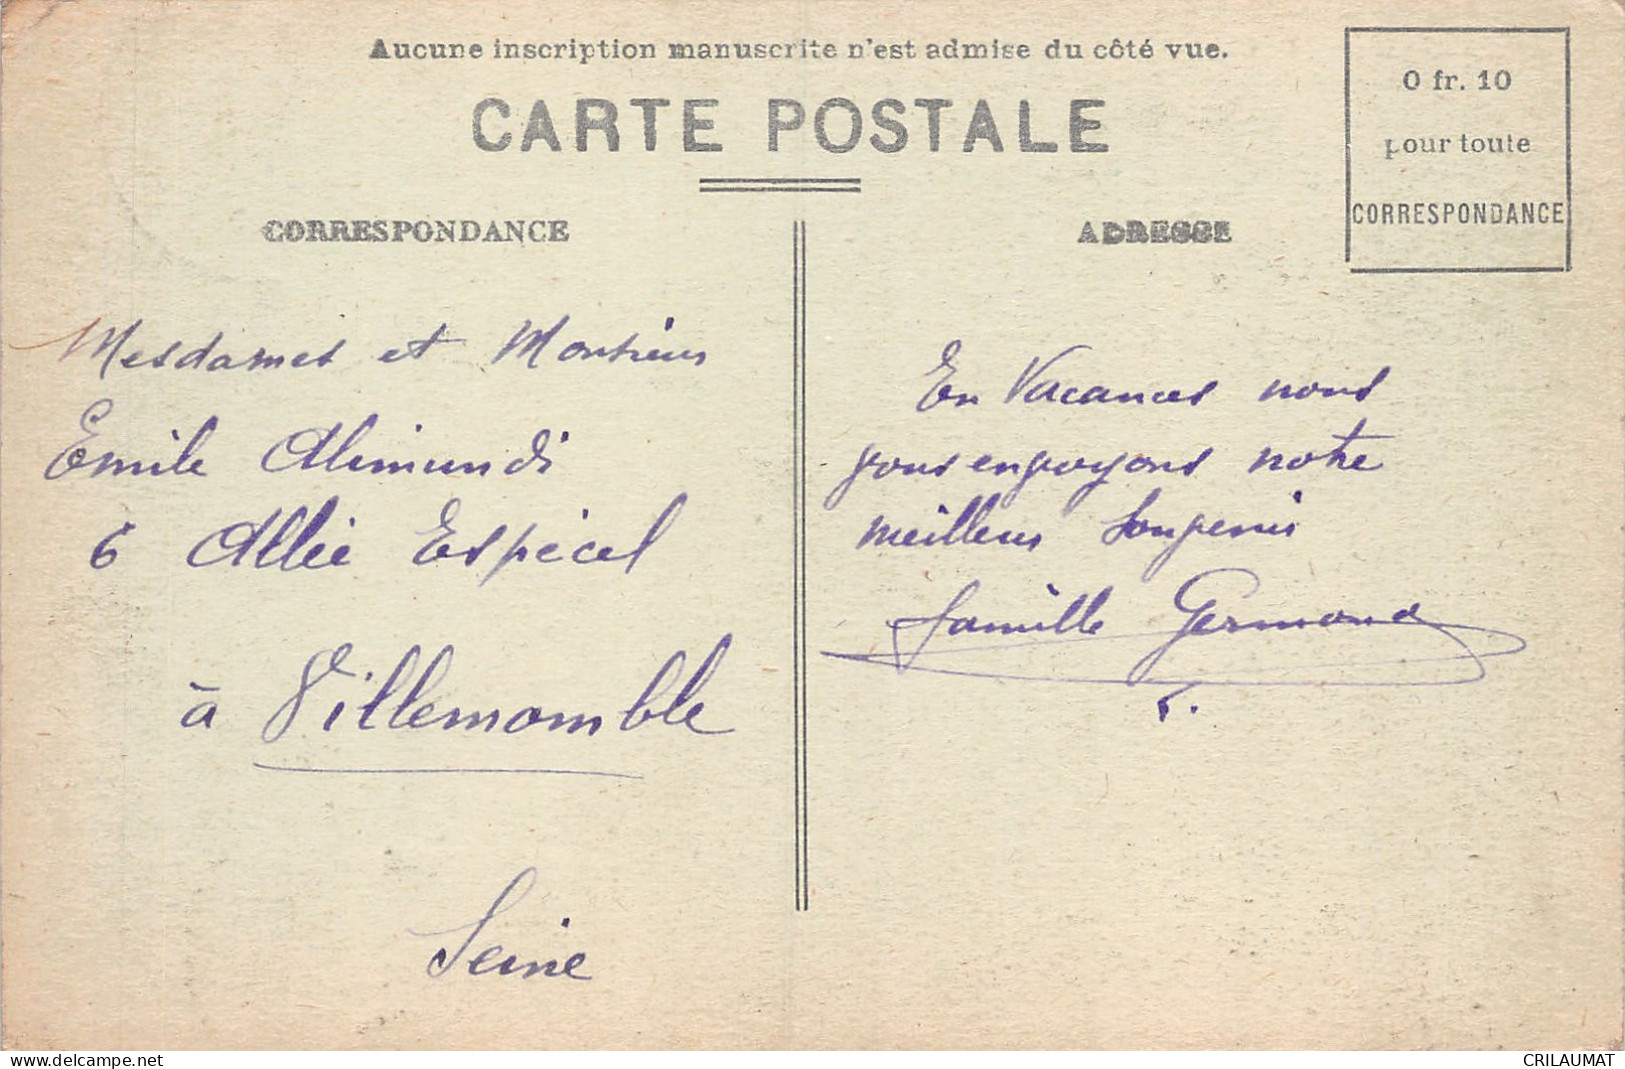 Aucune inscription manuscrite n'est admise du côté vue.
CARTE POSTALE
0 fr. 10
pour toute
CORRESPONDANCE
CORRESPONDANCE
Mesdames et Monsieur
Emile Alimundi
6 Allée Espécel
à Villemomble
Seine
ADRESSE
En Vacances nous
vous envoyons notre
meilleur Souvenir
famille Germond
www.delcampe.net
CRILAUMAT